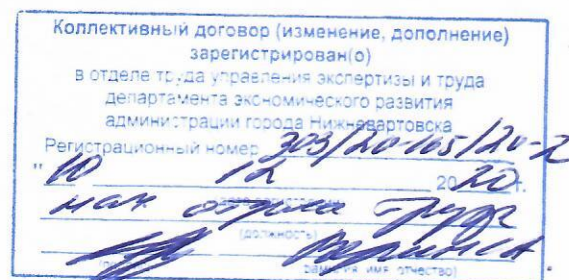 Коллективный договор (изменение, дополнение)
зарегистрирован(о)
в отделе труда управления экспертизы и труда
департамента экономического развития
администрации города Нижневартовска
Регистрационный номер 303/20-165/20-2
" 10 12 2020 г.
нач отдела труда
(должность)
фамилия имя отчество)